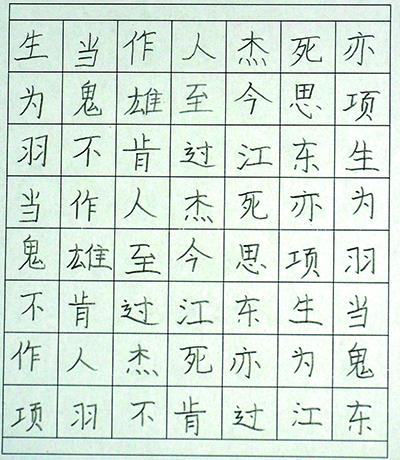 生当作人杰死亦
为鬼雄至今思项
羽不肯过江东生
当作人杰死亦为
鬼雄至今思项羽
不肯过江东生当
作人杰死亦为鬼
项羽不肯过江东